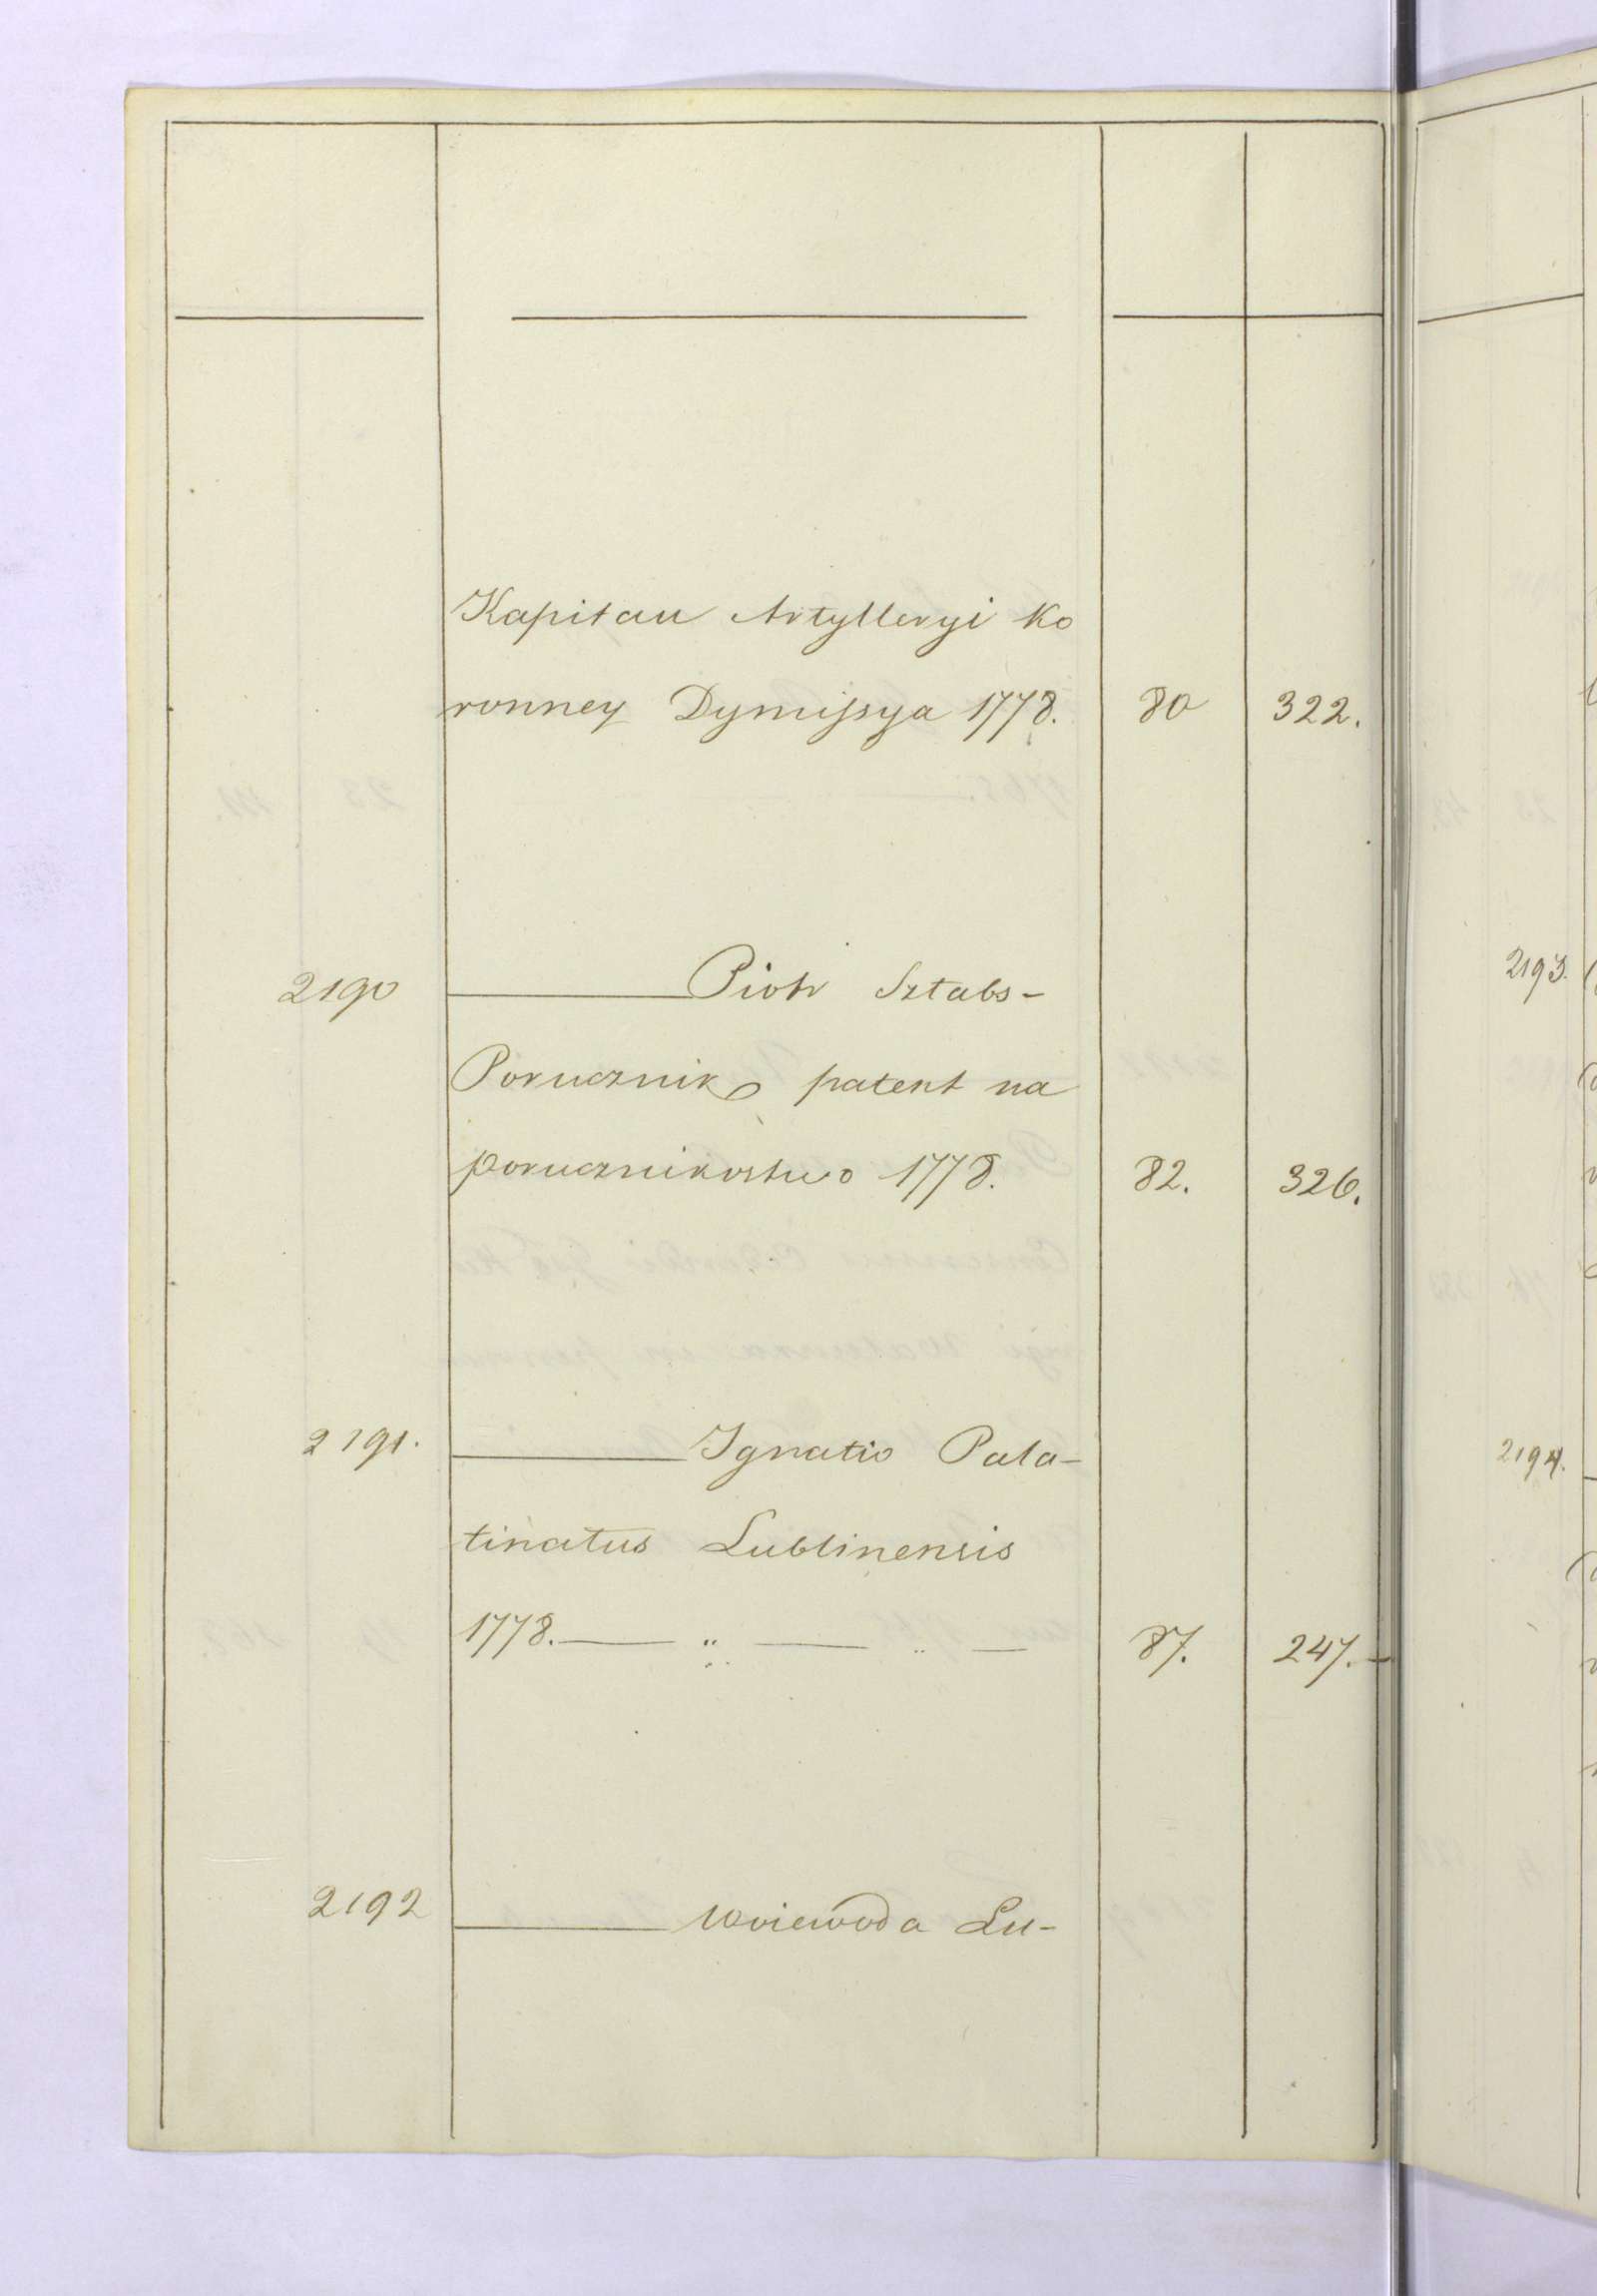 Kapitan Artylleryi Ko
ronney Dymissya 1778. 80 322.
2190 ——— Piotr Sztabs-
Porucznik patent na
porucznikostwo 1778. 82. 326.
2191. ——— Ignatio Pala-
tinatus Lublinensis
1778. — „ — „ — 87. 247.—
2192 ——— Woiewoda Lu-
2193.
2194.